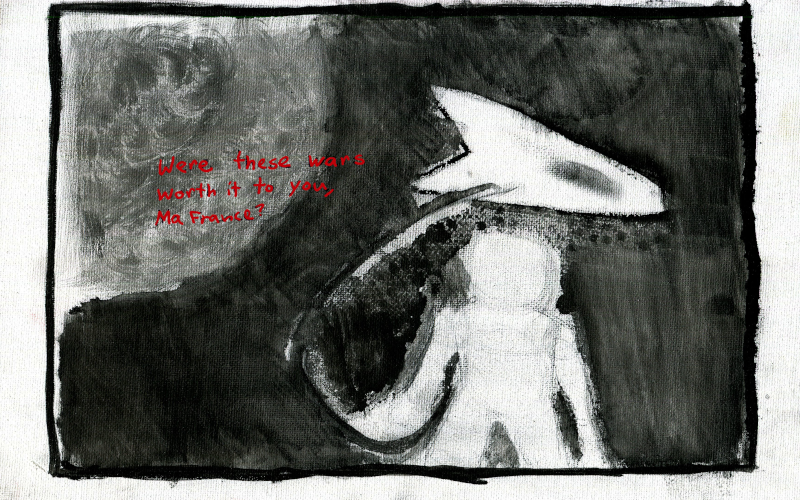 Were these wars
worth it to you,
Ma France?